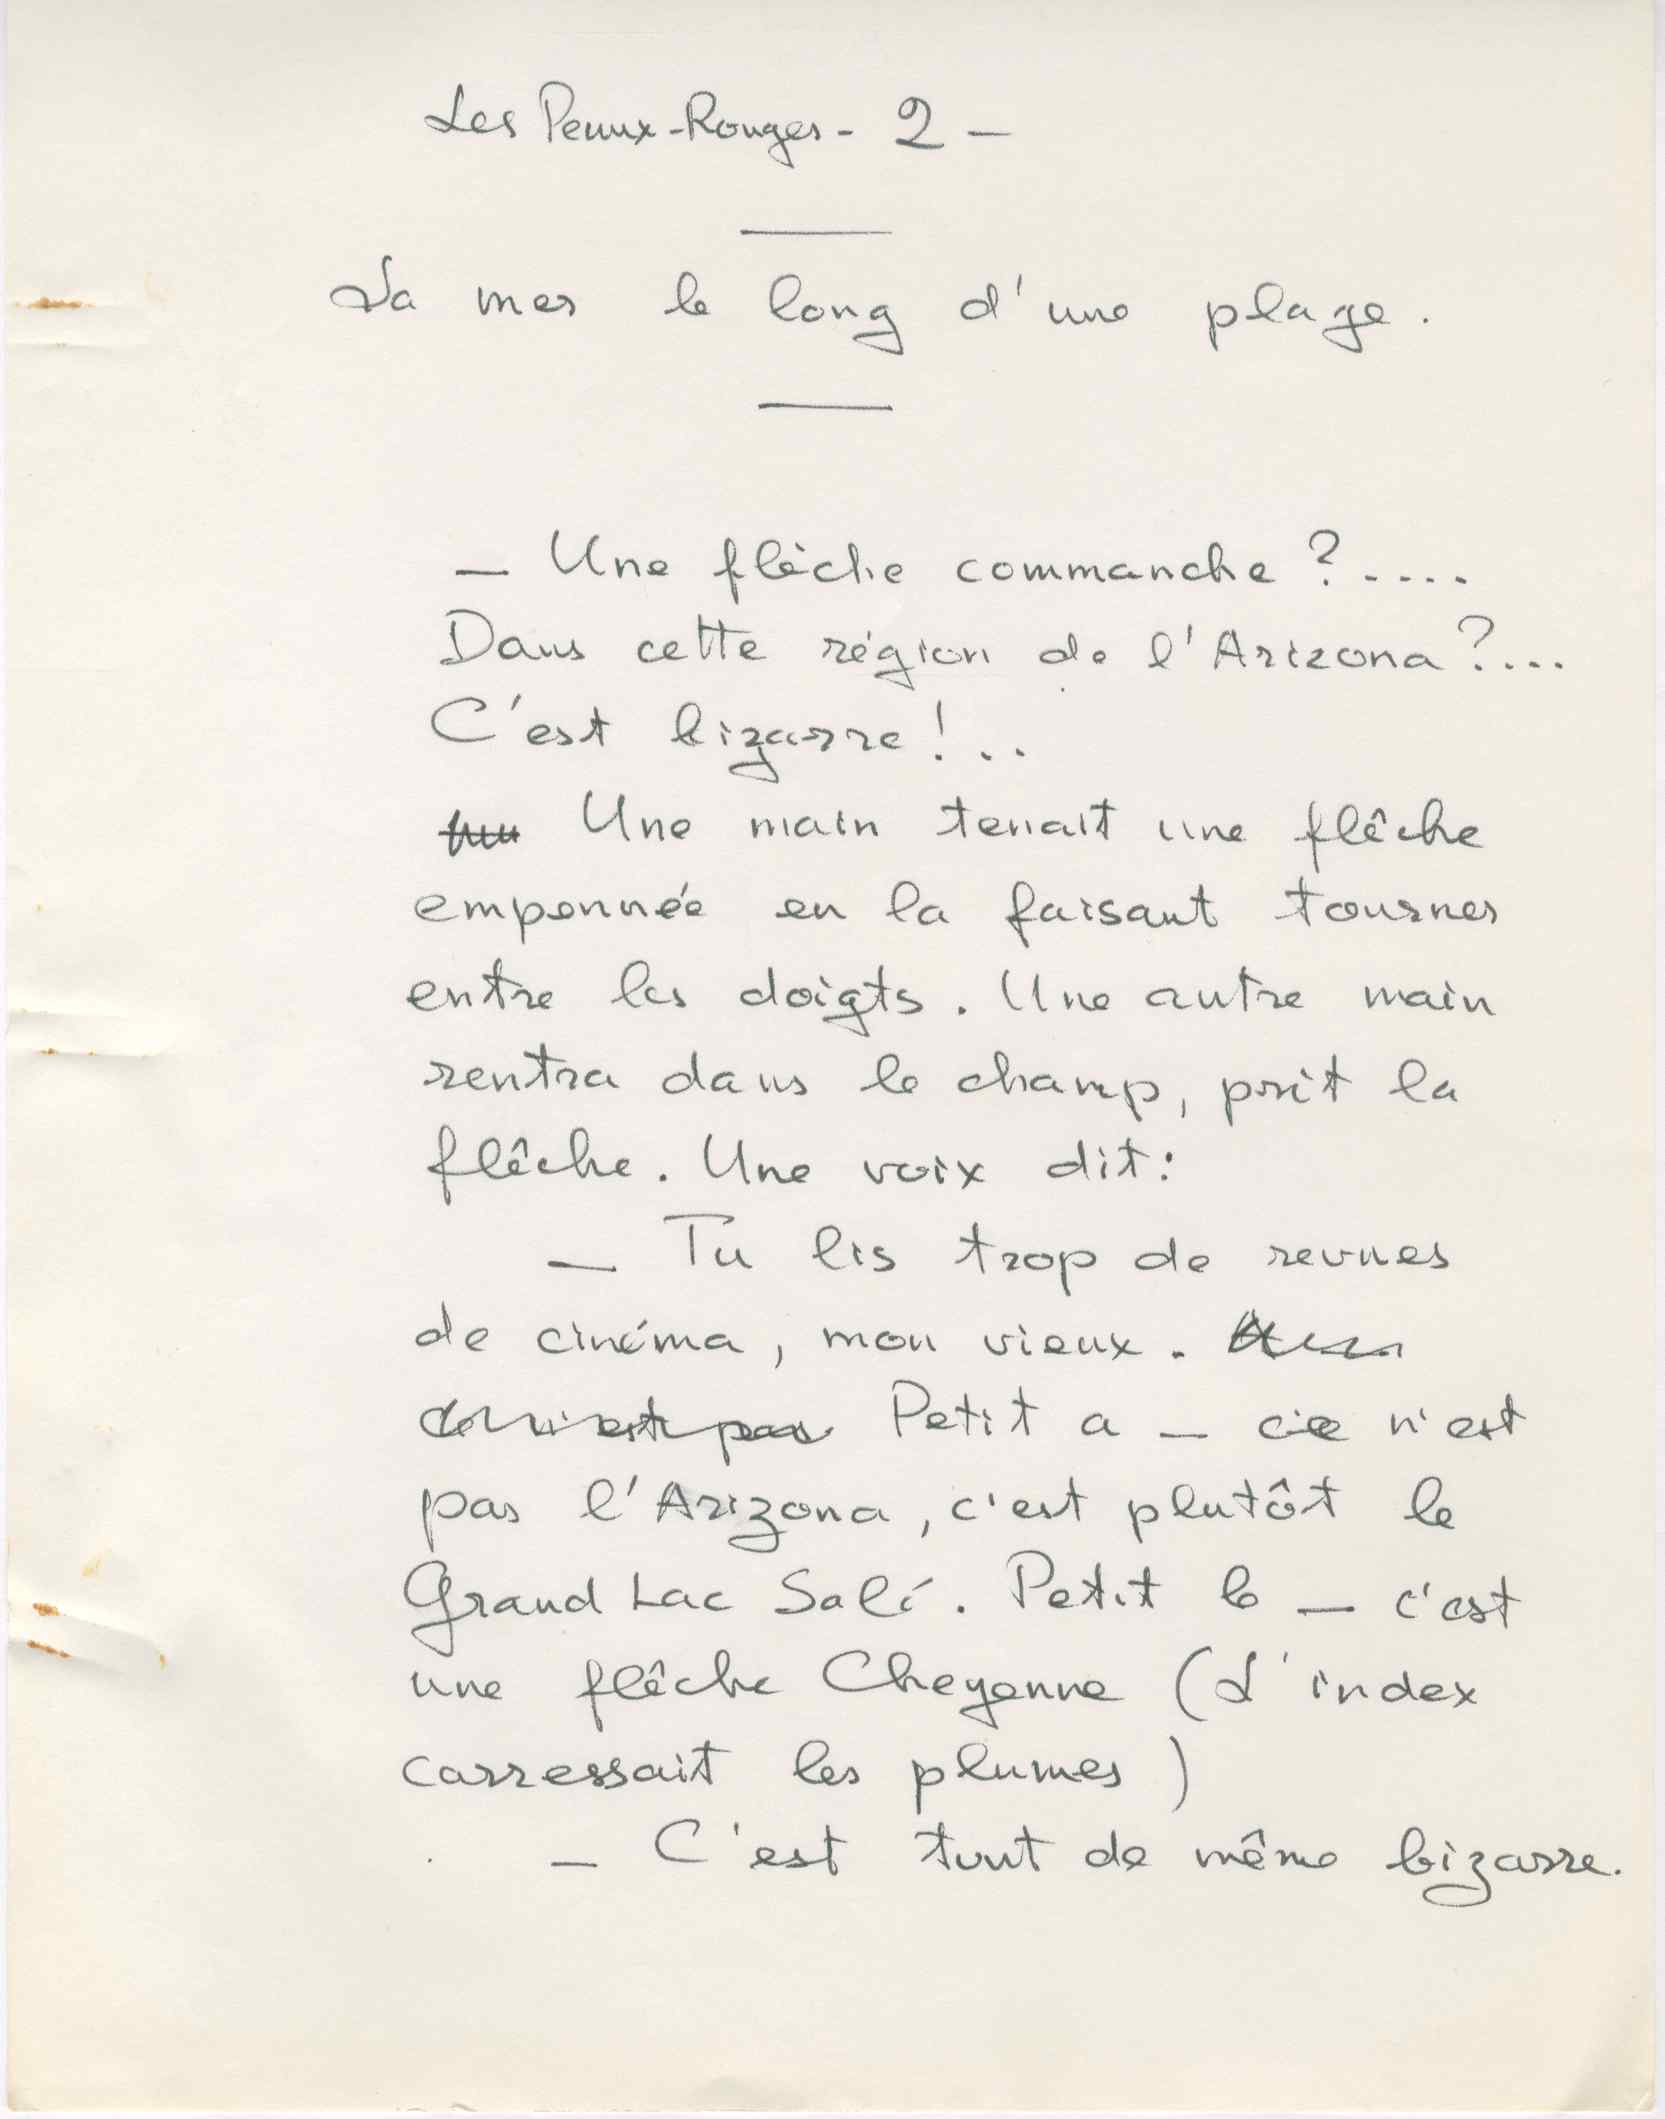 Les Peaux-Rouges - 2 -
La mer le long d'une plage.
— Une flèche commanche ?....
Dans cette région de l'Arizona ?...
C'est bizarre !..
Une main tenait une flêche
empennée en la faisant tourner
entre les doigts. Une autre main
rentra dans le champ, prit la
flêche. Une voix dit :
— Tu lis trop de revues
de cinéma, mon vieux.
ce n'est pas Petit a — ce n'est
pas l'Arizona, c'est plutôt le
Grand Lac Salé. Petit b — c'est
une flêche Cheyenne (L'index
carressait les plumes)
— C'est tout de même bizarre.